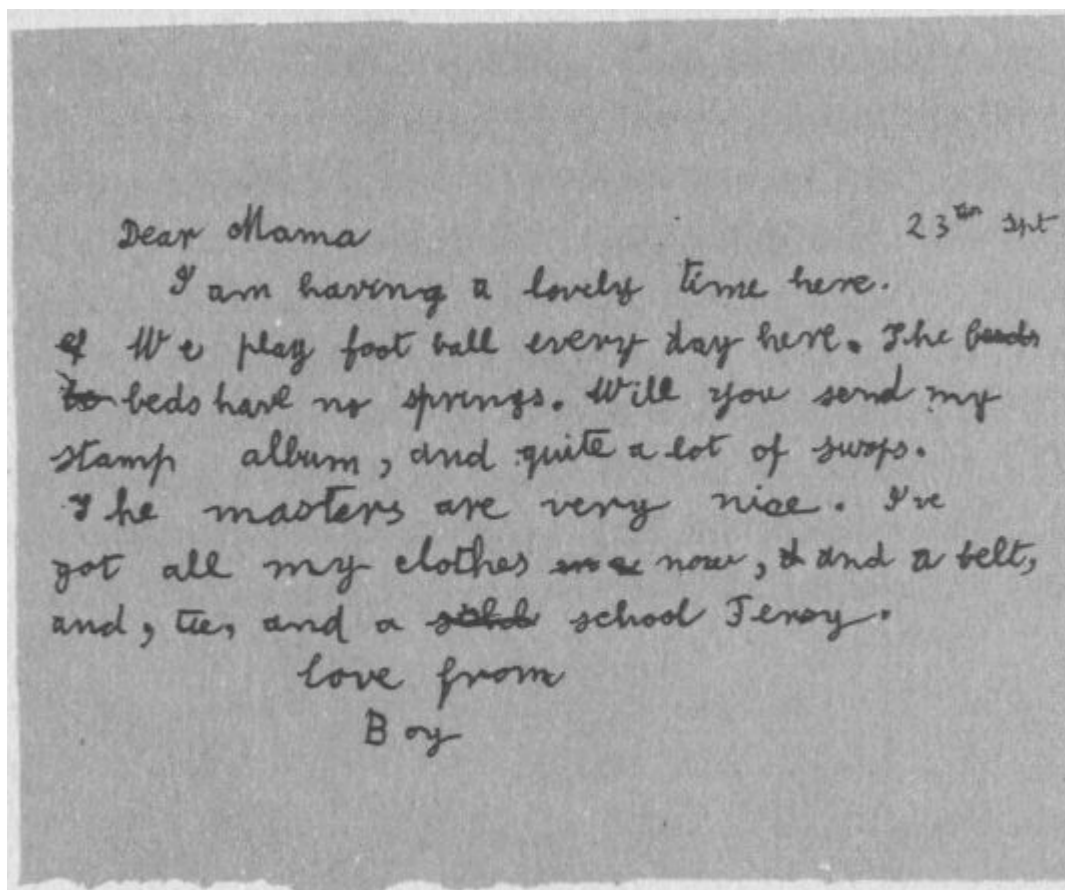 Dear Mama 23th Spt
I am having a lovely time here.
We play foot ball every day here. The
beds have no springs. Will you send my
stamp album, and quite a lot of swops.
The masters are very nice. I've
got all my clothes now, and a belt,
and, tie, and a school Jersy.
love from
Boy